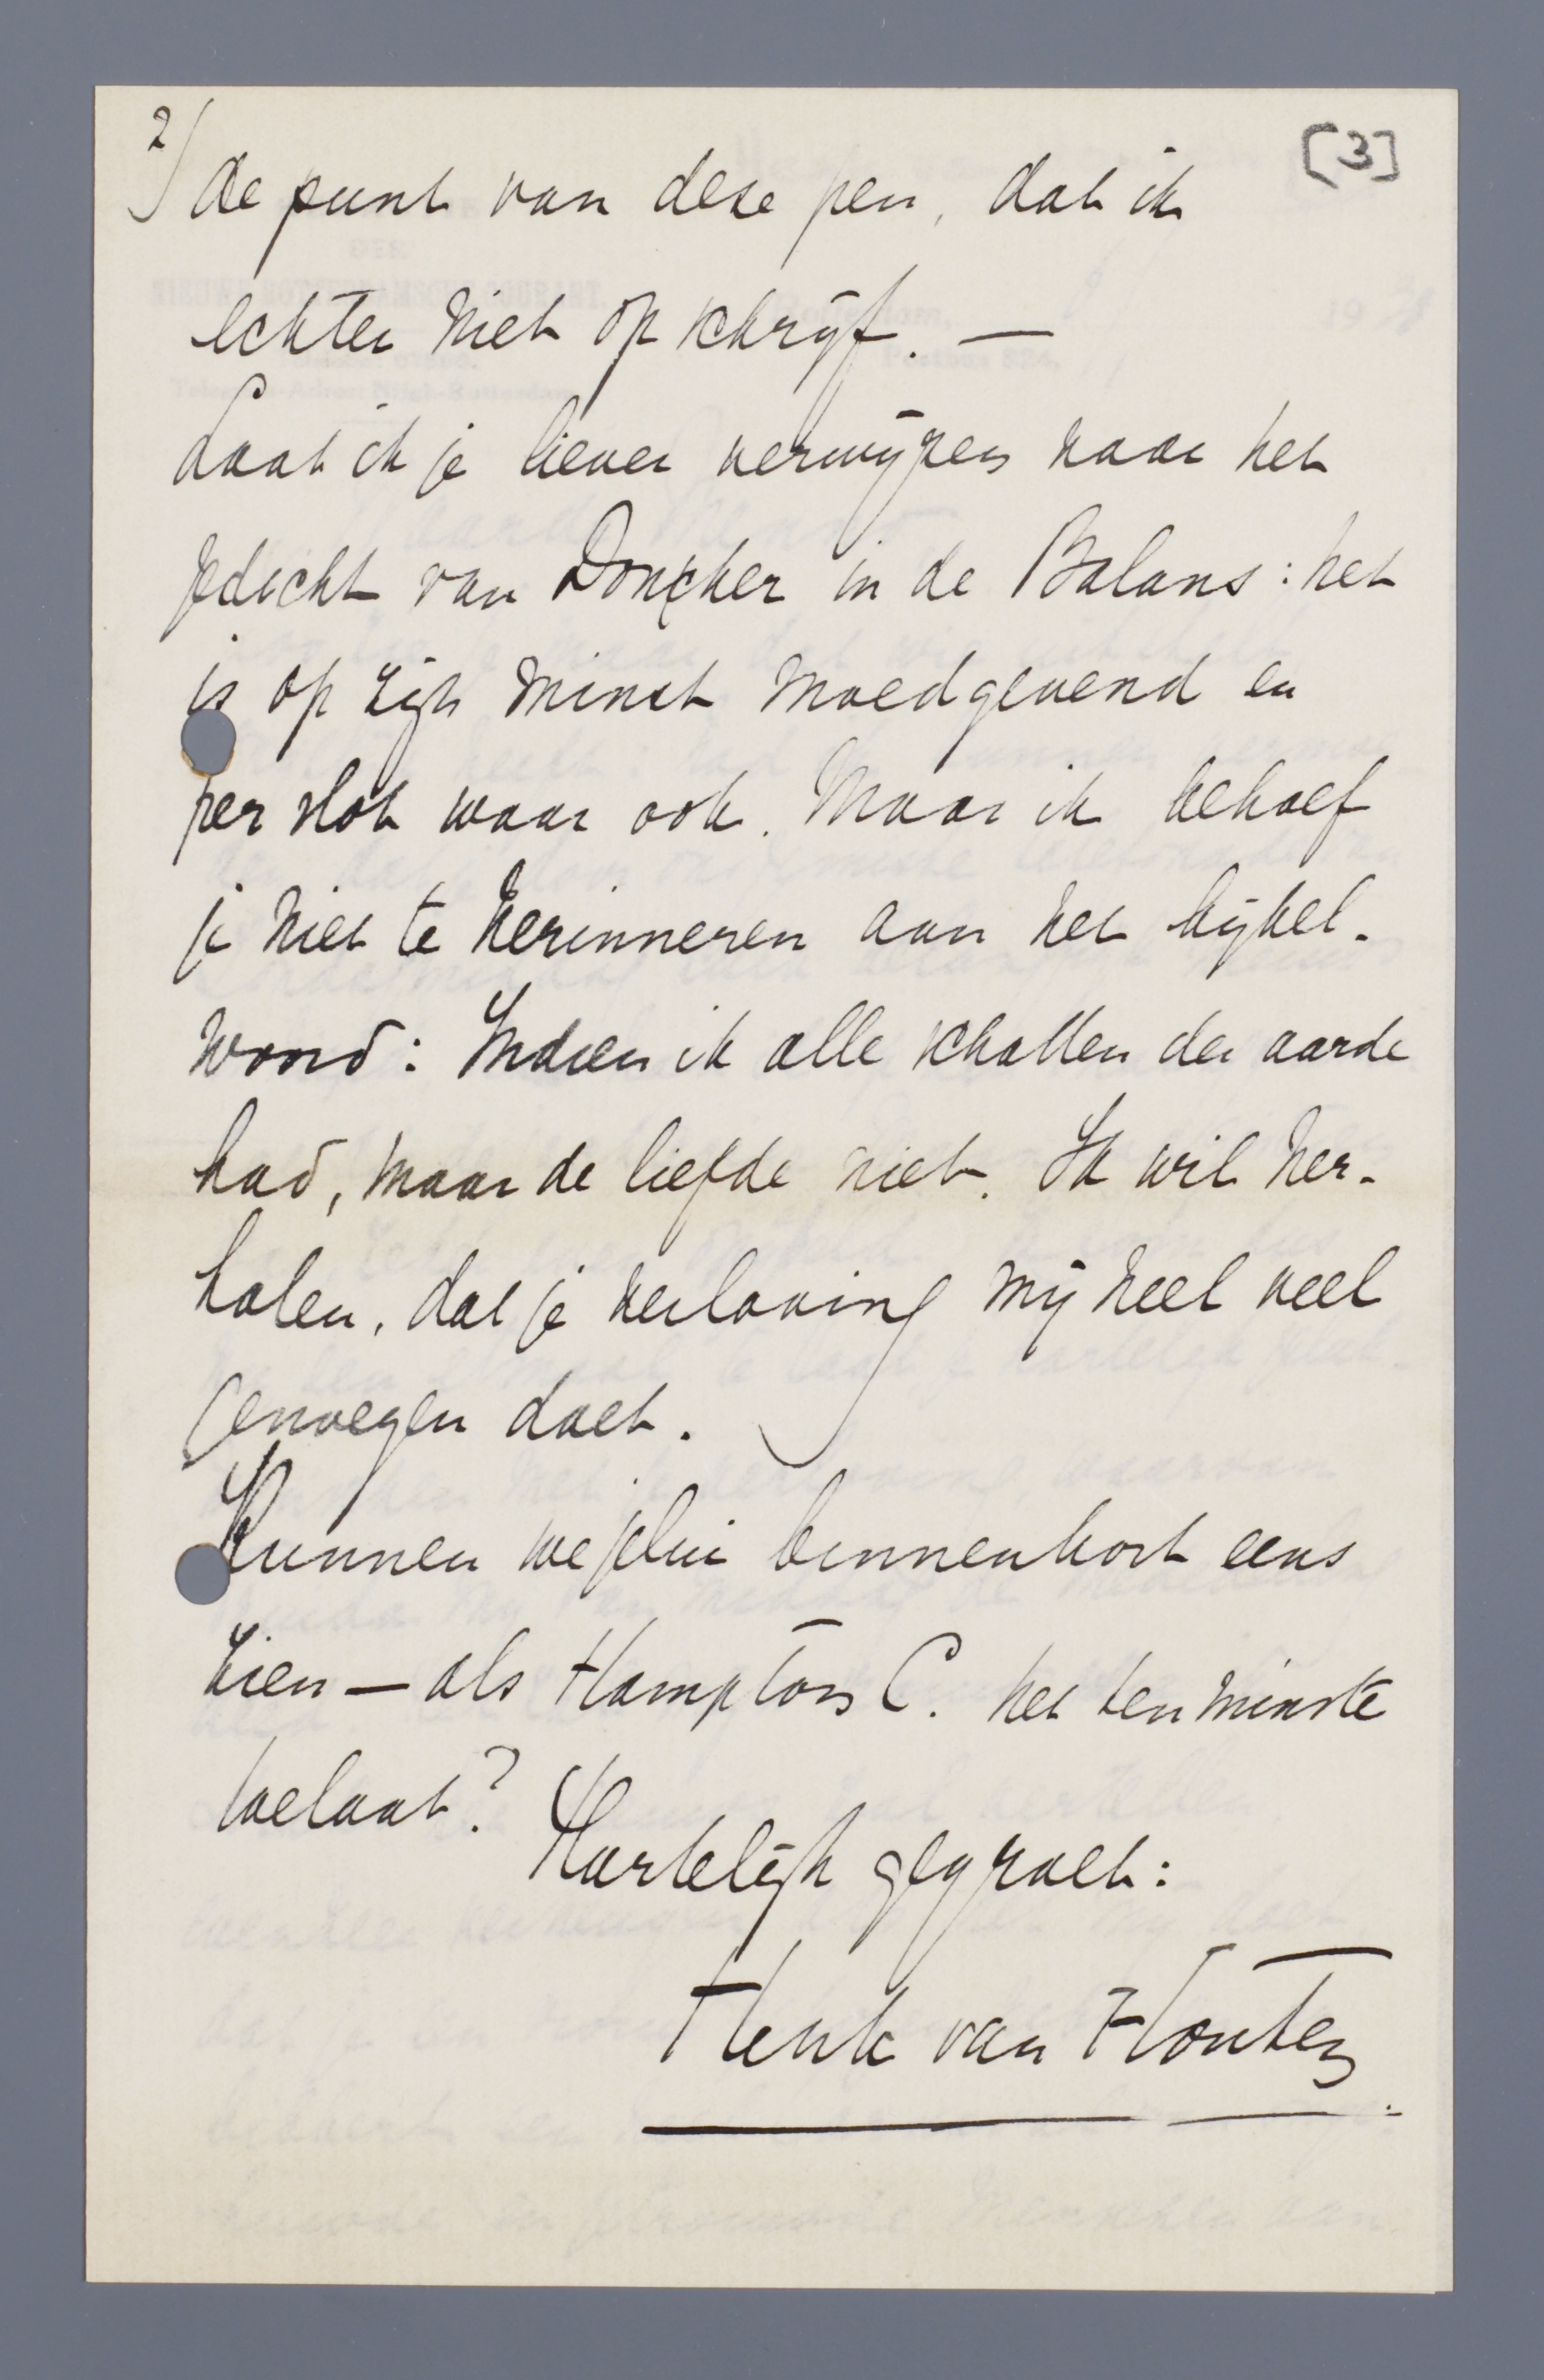 2)
[3]
de punt van deze pen, dat ik
echter niet op schrijf. —
Laat ik je liever verwijzen naar het
gedicht van Doncker in de Balans: het
is op zijn minst moedgevend en
per slot waar ook. Maar ik behoef
je niet te herinneren aan het bijbel-
woord: Indien ik alle schatten der aarde
had, maar de liefde niet. Ik wil her-
halen, dat je verloving mij heel veel
genoegen doet.
Kunnen we jelui binnenkort eens
zien — als Hampton C. het ten minste
toelaat?
Hartelijk gegroet:
Henk van Houten.